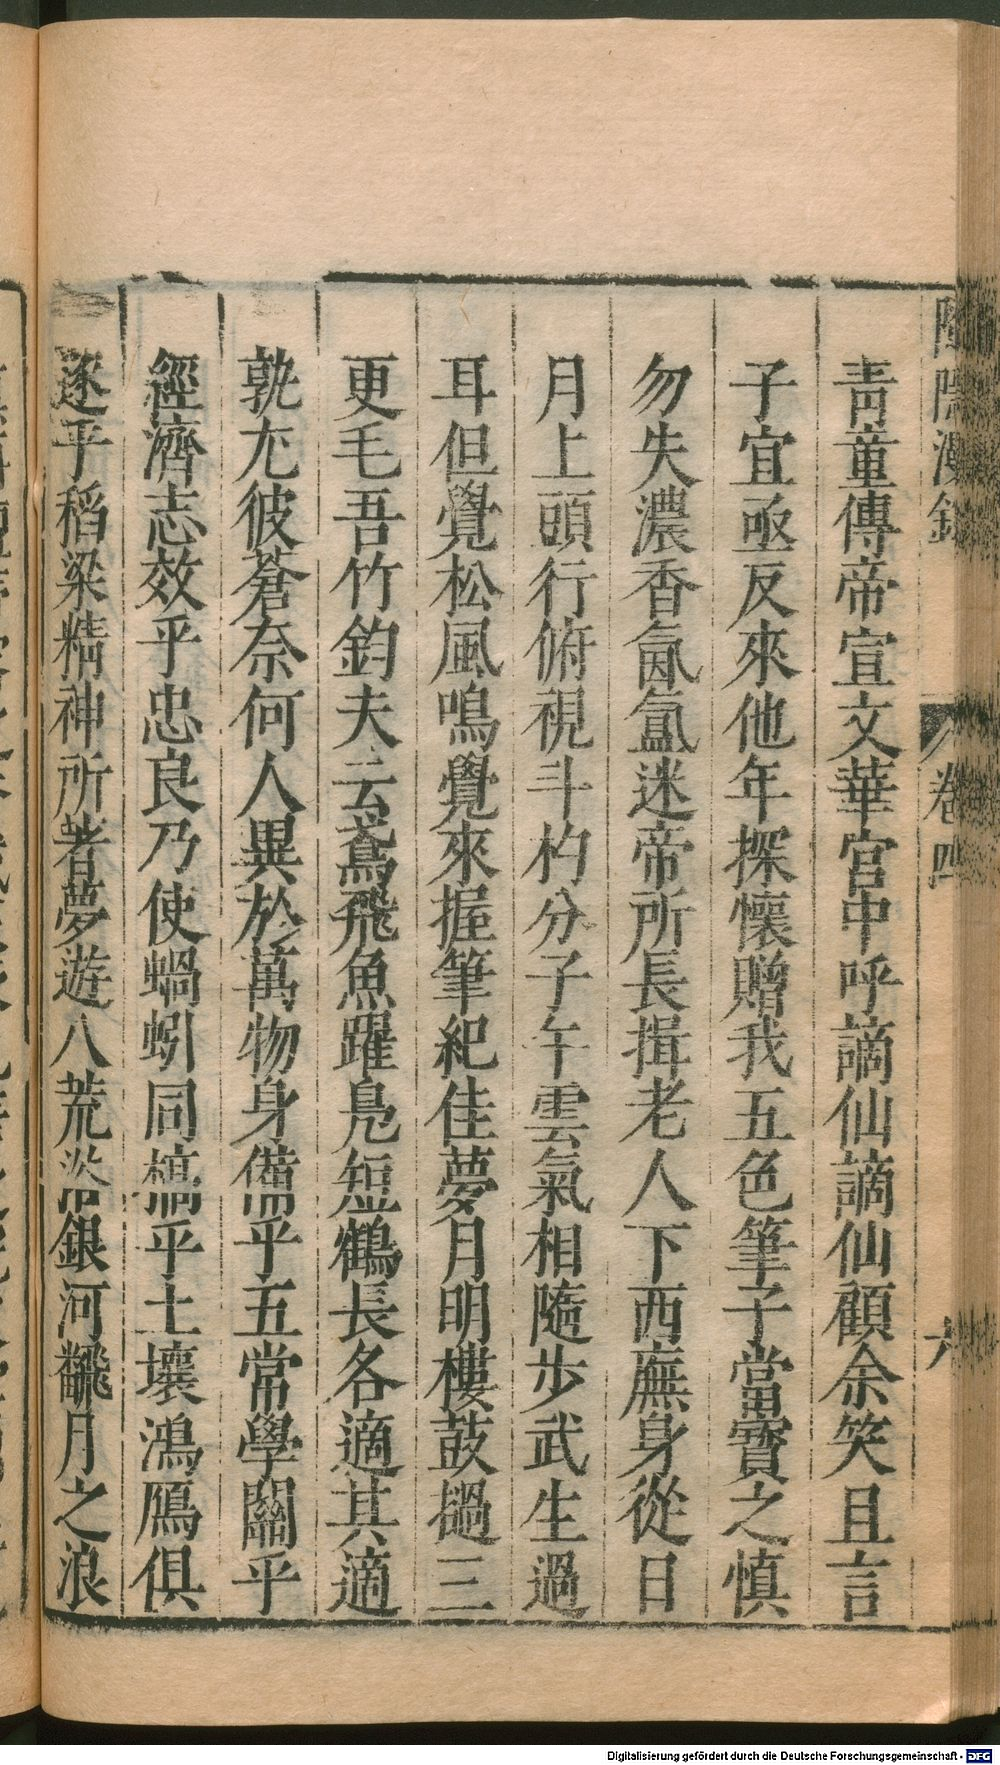 青童傳帝宣文華宮中呼謫仙謫仙顧余笑且言
子宜亟反來他年探懷贈我五色筆子當寶之慎
勿失濃香氤氳迷帝所長揖老人下西廡身從日
月上頭行俯視斗杓分子午雲氣相隨步武生過
耳但覺松風鳴覺來握筆紀佳夢月明樓鼓撾三
更毛吾竹鈞夫云鳶飛魚躍鳧短鶴長各適其適
孰尤彼蒼奈何人異於萬物身備乎五常學關乎
經濟志效乎忠良乃使蝸蚓同槁乎土壤鴻鴈俱
逐乎稻粱精神所著夢遊八荒銀河飜月之浪
卷四
Digitalisierung gefördert durch die Deutsche Forschungsgemeinschaft - DFG